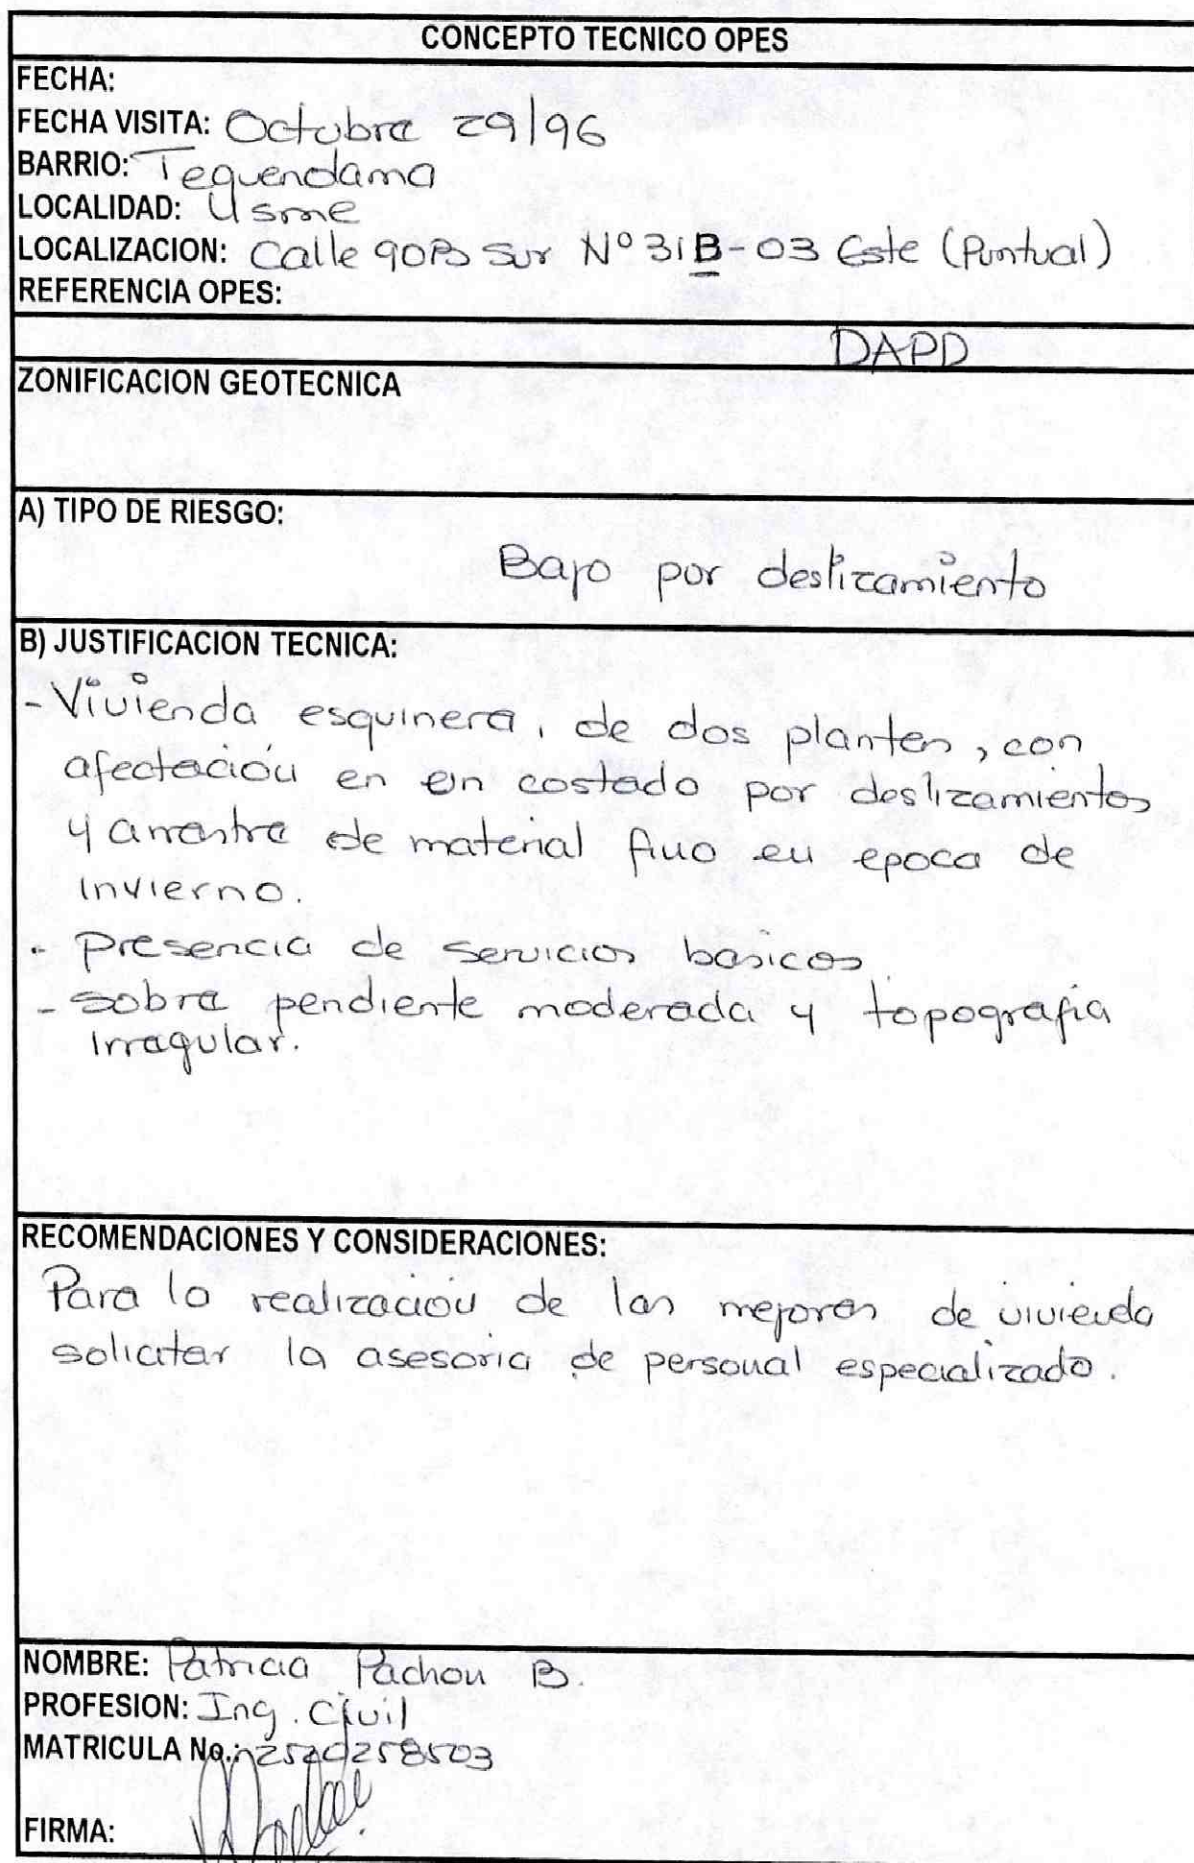 CONCEPTO TECNICO OPES
FECHA:
FECHA VISITA: Octubre 29/96
BARRIO: Tequendama
LOCALIDAD: Usme
LOCALIZACION: Calle 90B Sur Nº 31B-03 Este (Puntual)
REFERENCIA OPES:
DAPD
ZONIFICACION GEOTECNICA
A) TIPO DE RIESGO:
Bajo por deslizamiento
B) JUSTIFICACION TECNICA:
- Vivienda esquinera, de dos plantas, con
afectación en un costado por deslizamientos
y arrastre de material fino en epoca de
invierno.
- Presencia de servicios basicos.
- Sobre pendiente moderada y topografia
irregular.
RECOMENDACIONES Y CONSIDERACIONES:
Para la realización de las mejoras de vivienda
solicitar la asesoria de personal especializado.
NOMBRE: Patricia Pachon B.
PROFESION: Ing. Civil
MATRICULA No.:
FIRMA: